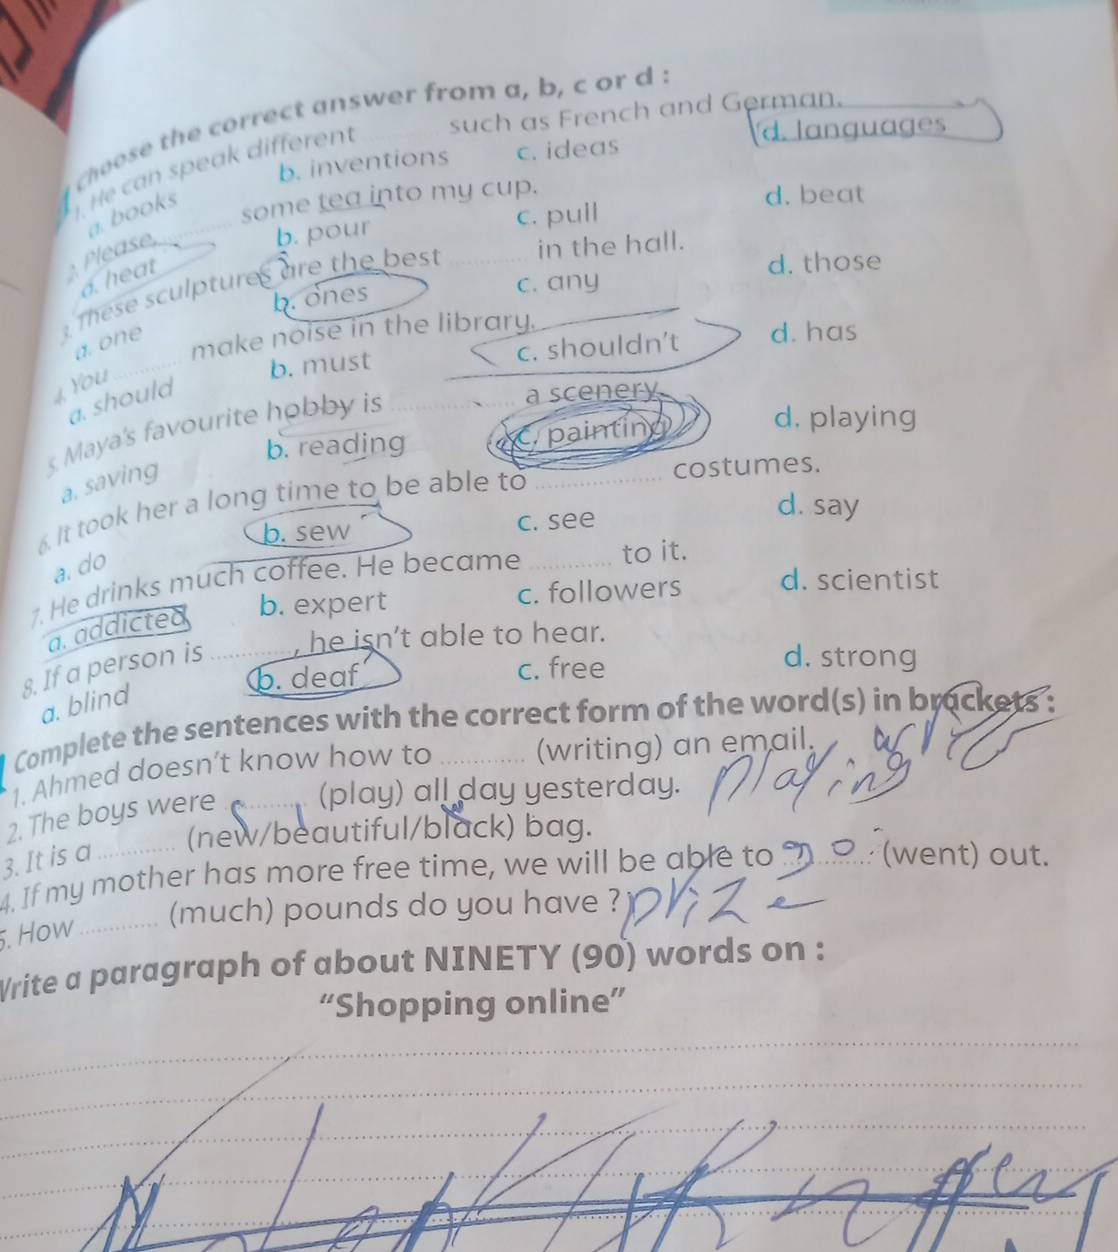 choose the correct answer from a, b, c or d :
1. He can speak different ............ such as French and German.
a. books b. inventions c. ideas d. languages
2. Please, ............ some tea into my cup.
a. heat b. pour c. pull d. beat
3. These sculptures are the best ............ in the hall.
a. one b. ones c. any d. those
4. You ............ make noise in the library.
a. should b. must c. shouldn't d. has
5. Maya's favourite hobby is ............ a scenery.
a. saving b. reading c. painting d. playing
6. It took her a long time to be able to ............ costumes.
a. do b. sew c. see d. say
7. He drinks much coffee. He became ............ to it.
a. addicted b. expert c. followers d. scientist
8. If a person is ............, he isn't able to hear.
a. blind b. deaf c. free d. strong
Complete the sentences with the correct form of the word(s) in brackets :
1. Ahmed doesn't know how to ............ (writing) an email.
2. The boys were ............ (play) all day yesterday. playing
3. It is a ............ (new/beautiful/black) bag.
4. If my mother has more free time, we will be able to go (went) out.
5. How ............ (much) pounds do you have ? prize
Write a paragraph of about NINETY (90) words on :
"Shopping online"